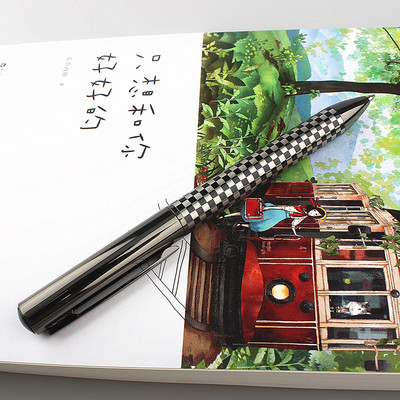 只想和你
好好的